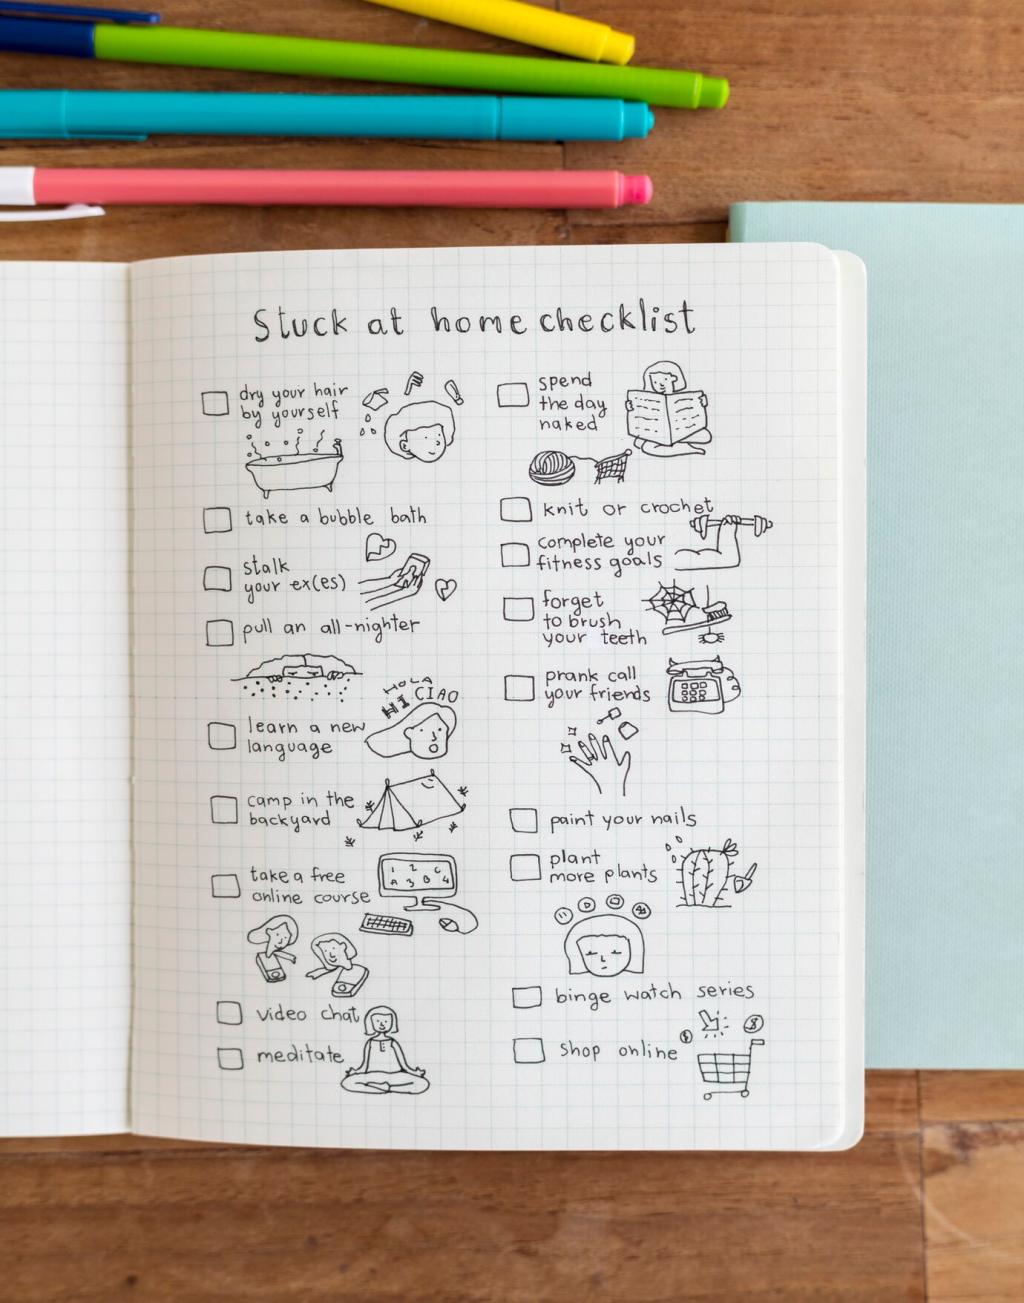 Stuck at home checklist
dry your hair
by yourself
take a bubble bath
stalk
your ex(es)
pull an all-nighter
HOLA
HI CIAO
learn a new
language
camp in the
backyard
take a free
online course
1 2 C
A 3 D 4
video chat
meditate
spend
the day
naked
knit or crochet
complete your
fitness goals
forget
to brush
your teeth
prank call
your friends
paint your nails
plant
more plants
binge watch series
shop online
$
$